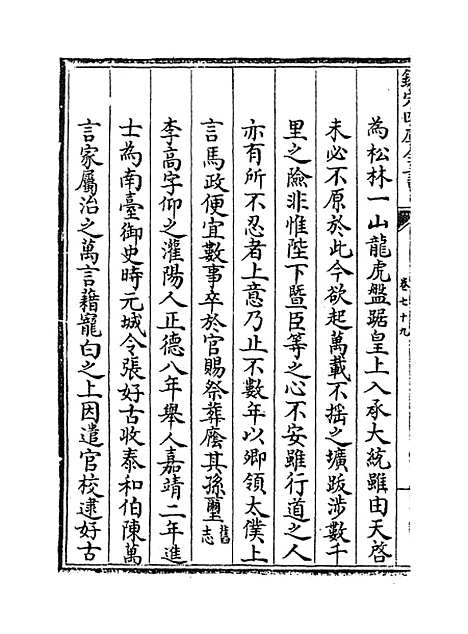 欽定四庫全書
卷七十九
為松林一山龍虎盤踞皇上入承大統雖由天啓
未必不原於此今欲起萬載不揺之壙跋涉數千
里之險非惟陛下暨臣等之心不安雖行道之人
亦有所不忍者上意乃止不數年以卿領太僕上
言馬政便宜數事卒於官賜祭葬廕其孫璽舊志
李高字仰之灌陽人正德八年舉人嘉靖二年進
士為南臺御史時元城令張好古收泰和伯陳萬
言家屬治之萬言藉寵白之上因遣官校逮好古